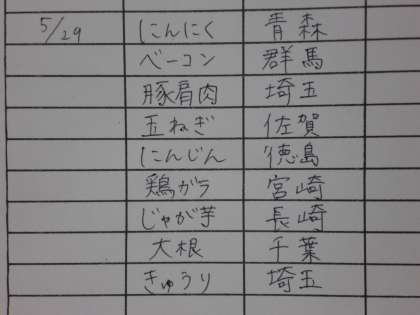 5/29 にんにく 青森
ベーコン 群馬
豚肩肉 埼玉
玉ねぎ 佐賀
にんじん 徳島
鶏ガラ 宮崎
じゃが芋 長崎
大根 千葉
きゅうり 埼玉